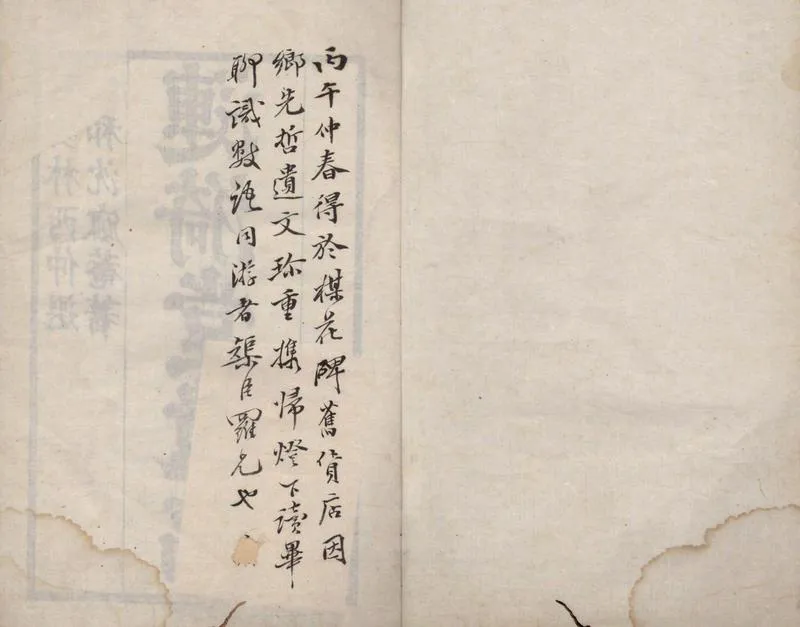 丙午仲春得於楳花碑舊貨店因
鄉先哲遺文珍重攜歸燈下讀畢
聊識數語同游者臣羅兄也